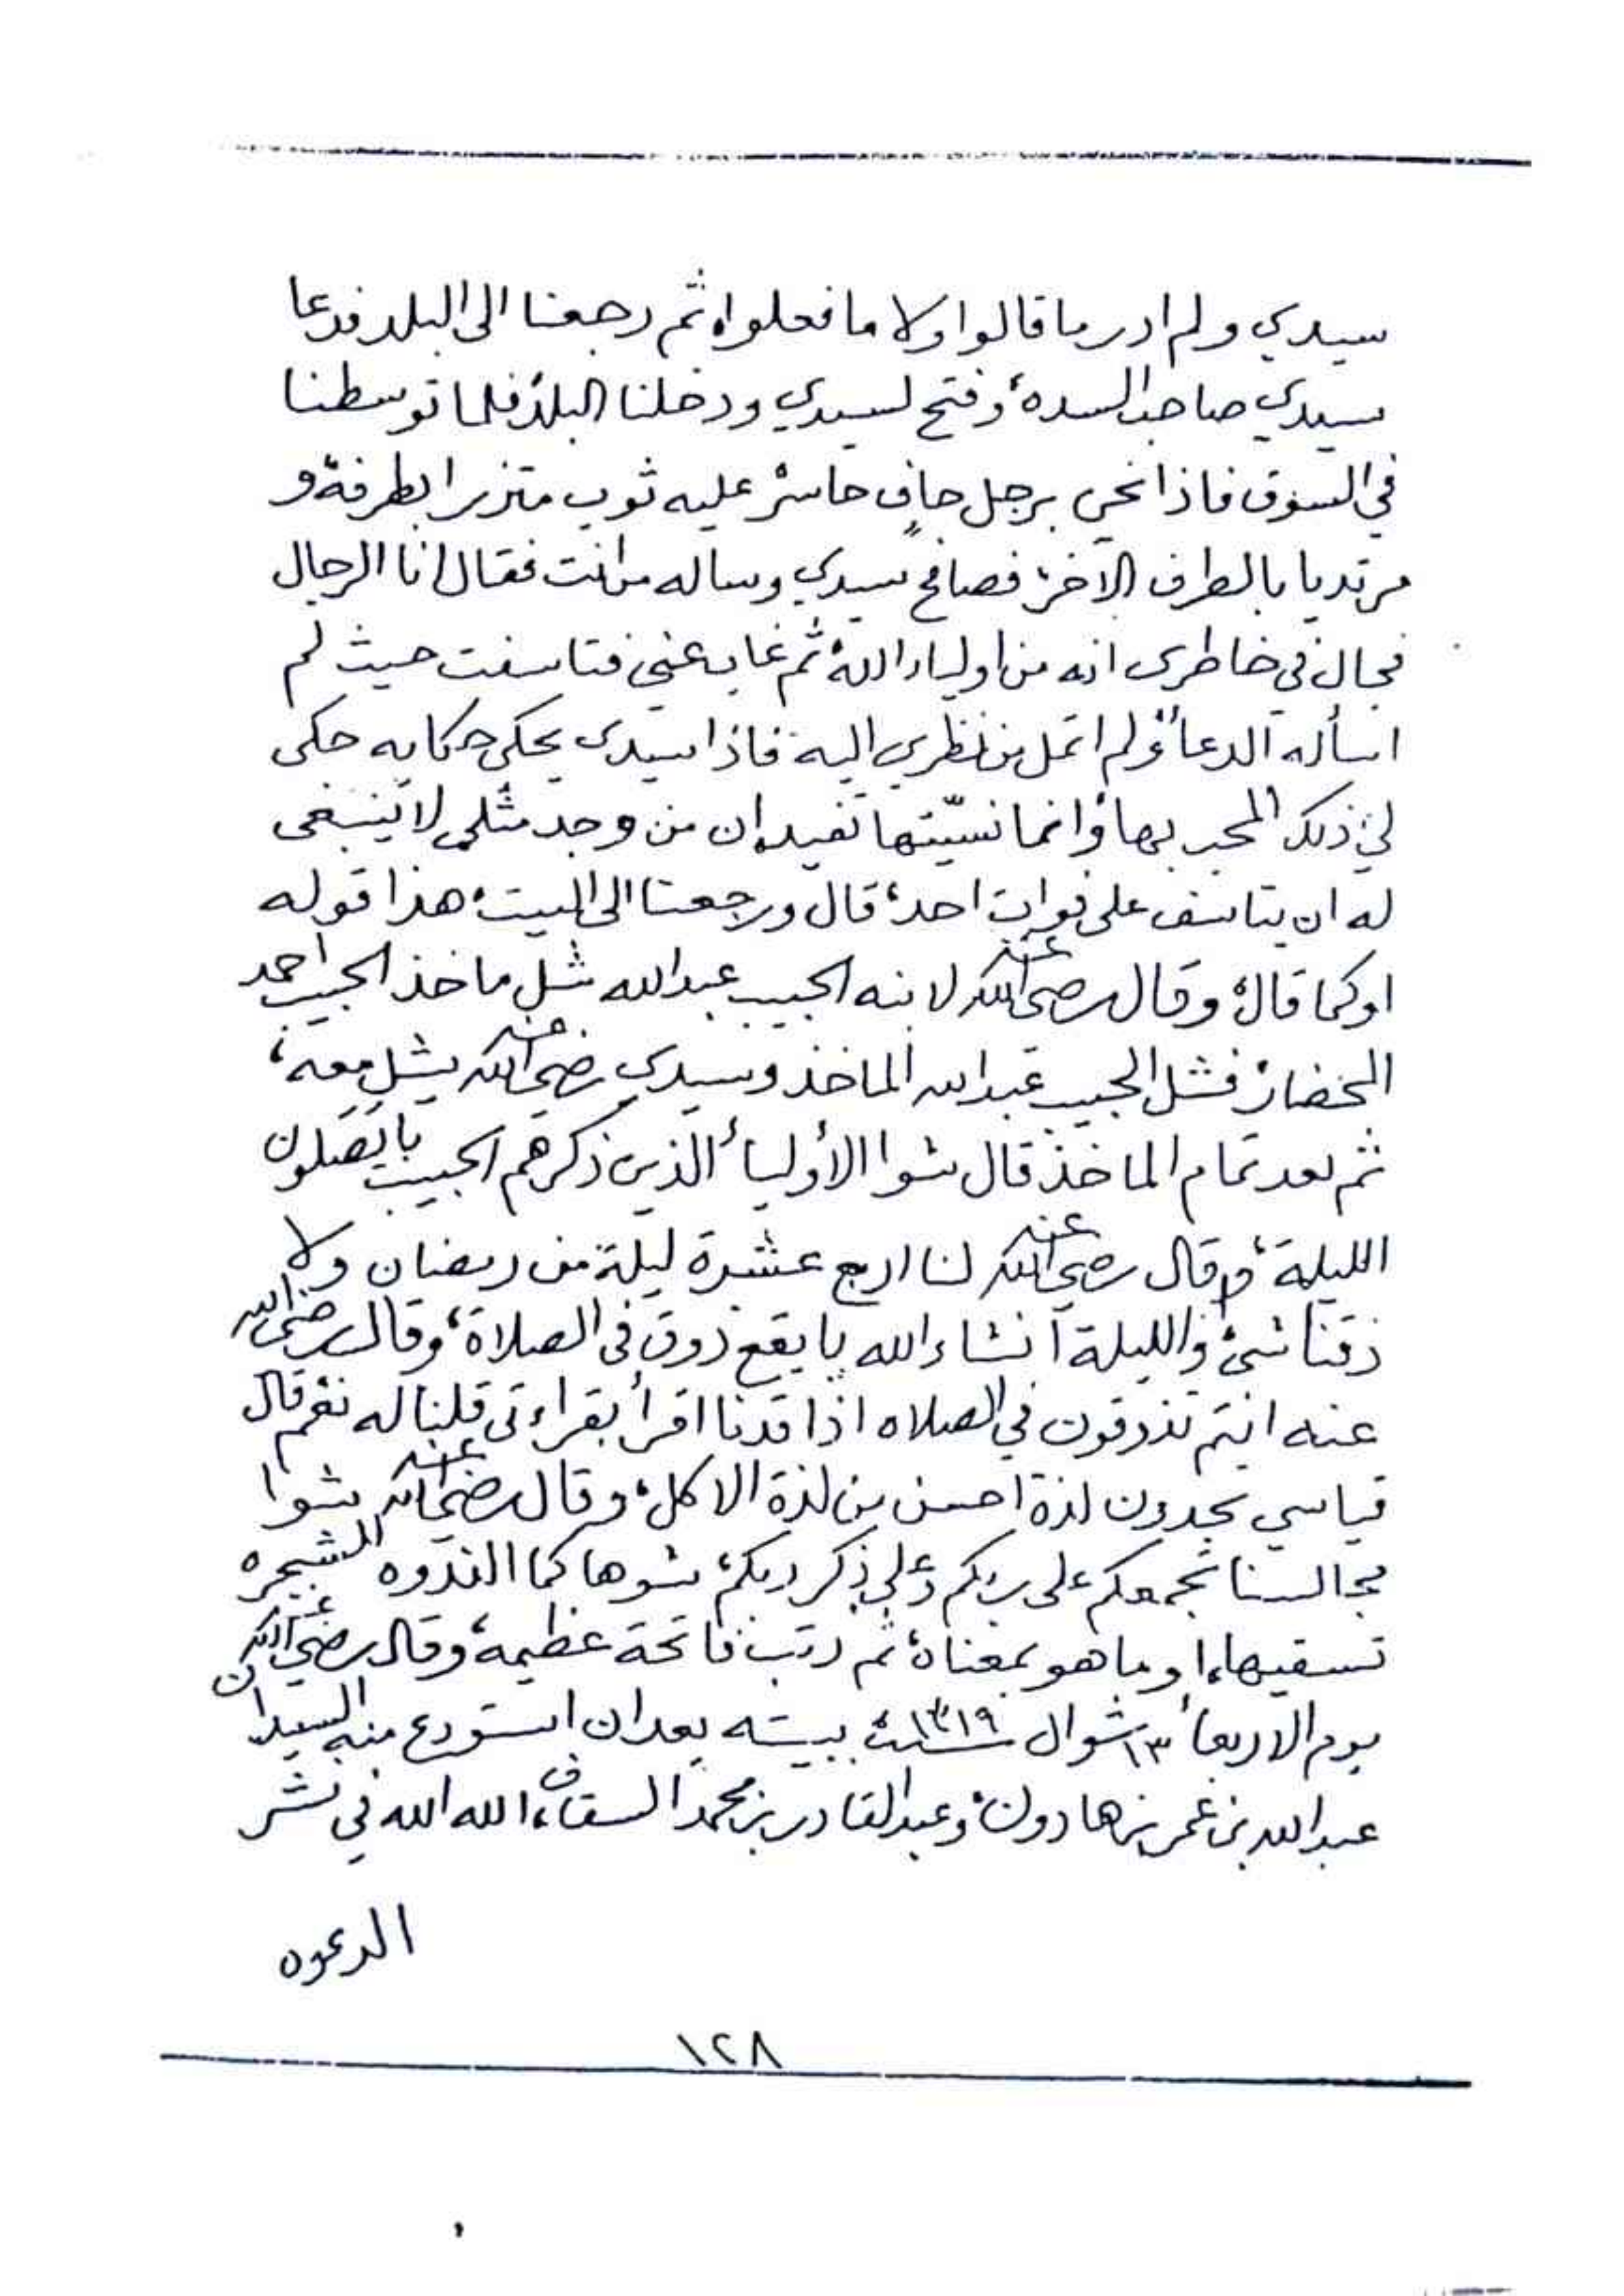 سيدي ولم ادر ما قالوا ولا ما فعلوا، ثم رجعنا الى البلد فدعا
سيدي صاحب السده، وفتح لسيدي ودخلنا البلد، فلما توسطنا
في السوق فاذا نحن برجل حافٍ حاسر، عليه ثوب متزر ا بطرفة، و
مرتديا بالطرف الاخر، فصافح سيدي وساله من انت فقال انا الرجال
فجال في خاطرى انه من اولياء الله، ثم غاب عني فتاسفت حيث لم
اسأله الدعأ، ولم اتمل من نظري اليه، فاذا سيدى يحكى حكايه حكى
لي ذلك المحب بها، وانما نسّيتها تفيد، ان من وجد مثلي لا ينبغى
له ان يتاسف على فوات احد، قال ورجعنا الى البيت، هذا قوله
اوكما قال، وقال رضي الله عنه لابنه الحبيب عبدالله شل ماخذ الحبيب احمد
الحضار، فشل الحبيب عبدالله الماخذ وسيدي رضي الله عنه يشل معه،
ثم بعد تمام الماخذ قال شوا الأوليأ الذين ذكرهم الحبيب بايصلون
الليلة، وقال رضي الله عنه لنا اربع عشرة ليلة من رمضان ولا
ذقنا شئ، والليلة انشاء الله بايقع ذوق فى الصلاة، وقال رضي الله
عنه انتم تذوقون في الصلاه اذا قدنا اقرأ بقراءتى قلنا له نعم، قال
قياسي تجدون لذة احسن من لذة الاكل، وقال رضي الله عنه شوا
مجالسنا تجمعكم على ربكم وعلى ذكر ربكم، شوها كما الندوه الشجره
تسقيها، او ما هو بمعناه، ثم رتب فاتحة عظيمة، وقال رضي الله عنه
يوم الاربعأ ١٣ شوال سنة ١٣١٩ ببيته بعد ان استودع منه السيدان
عبدالله بن عمر بن هادون، وعبدالقادر بن محمد السقاف، الله الله في نشر
الدعوه
١٢٨